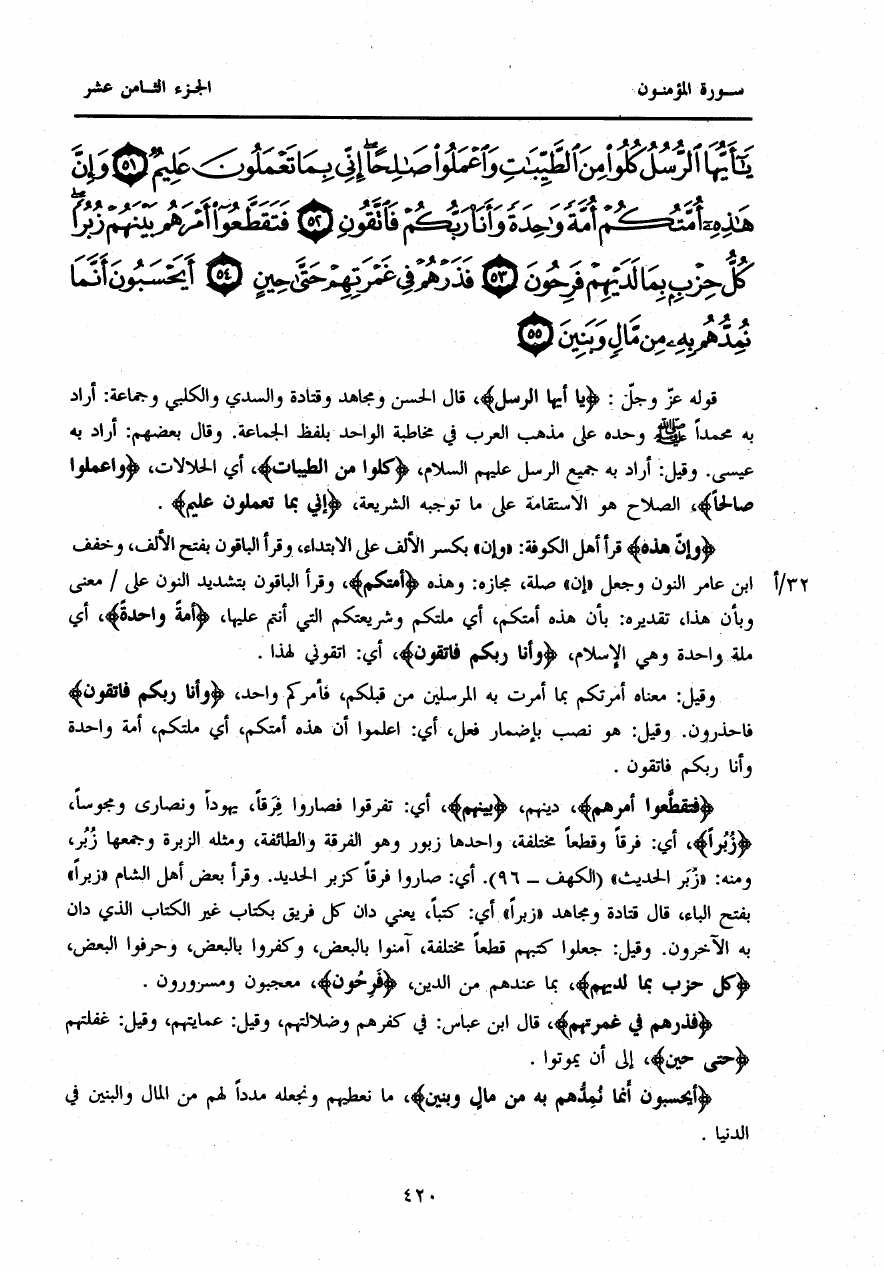 سـورة المؤمنـون
الجـزء الثـامن عشر
يَٰٓأَيُّهَا ٱلرُّسُلُ كُلُوا۟ مِنَ ٱلطَّيِّبَٰتِ وَٱعْمَلُوا۟ صَٰلِحًا ۖ إِنِّى بِمَا تَعْمَلُونَ عَلِيمٌ ٥١ وَإِنَّ
هَٰذِهِۦٓ أُمَّتُكُمْ أُمَّةً وَٰحِدَةً وَأَنَا۠ رَبُّكُمْ فَٱتَّقُونِ ٥٢ فَتَقَطَّعُوٓا۟ أَمْرَهُم بَيْنَهُمْ زُبُرًا ۖ
كُلُّ حِزْبٍۭ بِمَا لَدَيْهِمْ فَرِحُونَ ٥٣ فَذَرْهُمْ فِى غَمْرَتِهِمْ حَتَّىٰ حِينٍ ٥٤ أَيَحْسَبُونَ أَنَّمَا
نُمِدُّهُم بِهِۦ مِن مَّالٍ وَبَنِينَ ٥٥
قوله عزّ وجلّ : ﴿يا أيها الرسل﴾، قال الحسن ومجاهد وقتادة والسدي والكلبي وجماعة: أراد
به محمداً ﷺ وحده على مذهب العرب في مخاطبة الواحد بلفظ الجماعة. وقال بعضهم: أراد به
عيسى. وقيل: أراد به جميع الرسل عليهم السلام، ﴿كلوا من الطيبات﴾، أي الحلالات، ﴿واعملوا
صالحاً﴾، الصلاح هو الاستقامة على ما توجبه الشريعة، ﴿إني بما تعملون عليم﴾ .
﴿وإنّ هذه﴾ قرأ أهل الكوفة: «وإن» بكسر الألف على الابتداء، وقرأ الباقون بفتح الألف، وخفف
٣٢/أ ابن عامر النون وجعل «إن» صلة، مجازه: وهذه ﴿أمتكم﴾، وقرأ الباقون بتشديد النون على / معنى
وبأن هذا، تقديره: بأن هذه أمتكم، أي ملتكم وشريعتكم التي أنتم عليها، ﴿أمةً واحدةً﴾، أي
ملة واحدة وهي الإسلام، ﴿وأنا ربكم فاتقون﴾، أي: اتقوني لهذا .
وقيل: معناه أمرتكم بما أمرت به المرسلين من قبلكم، فأمركم واحد، ﴿وأنا ربكم فاتقون﴾
فاحذرون. وقيل: هو نصب بإضمار فعل، أي: اعلموا أن هذه أمتكم، أي ملتكم، أمة واحدة
وأنا ربكم فاتقون .
﴿فتقطَّعوا أمرهم﴾، دينهم، ﴿بينهم﴾، أي: تفرقوا فصاروا فِرَقاً، يهوداً ونصارى ومجوساً،
﴿زُبُراً﴾، أي: فرقاً وقطعاً مختلفة، واحدها زبور وهو الفرقة والطائفة، ومثله الزبرة وجمعها زُبُر،
ومنه: «زُبَر الحديث» (الكهف ــ ٩٦). أي: صاروا فرقاً كزبر الحديد. وقرأ بعض أهل الشام «زبراً»
بفتح الباء، قال قتادة ومجاهد «زبراً» أي: كتباً، يعني دان كل فريق بكتاب غير الكتاب الذي دان
به الآخرون. وقيل: جعلوا كتبهم قطعاً مختلفة، آمنوا بالبعض، وكفروا بالبعض، وحرفوا البعض،
﴿كل حزب بما لديهم﴾، بما عندهم من الدين، ﴿فَرِحُون﴾، معجبون ومسرورون .
﴿فذرهم في غمرتهم﴾، قال ابن عباس: في كفرهم وضلالتهم، وقيل: عمايتهم، وقيل: غفلتهم
﴿حتى حين﴾، إلى أن يموتوا .
﴿أيحسبون أنما نُمِدُّهم به من مالٍ وبنين﴾، ما نعطيهم ونجعله مدداً لهم من المال والبنين في
الدنيا .
٤٢٠